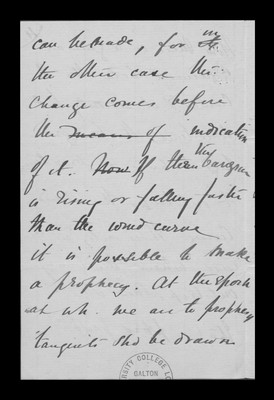 can be made, for in
the other case the
change comes before
the means of indication
of it. Now If the bargram
is rising or falling faster
than the wind curve
it is possible to make
a prophecy. At the epoch
at wh. we are to prophecy
tangents shd be drawn
UNIVERSITY COLLEGE LO
GALTON